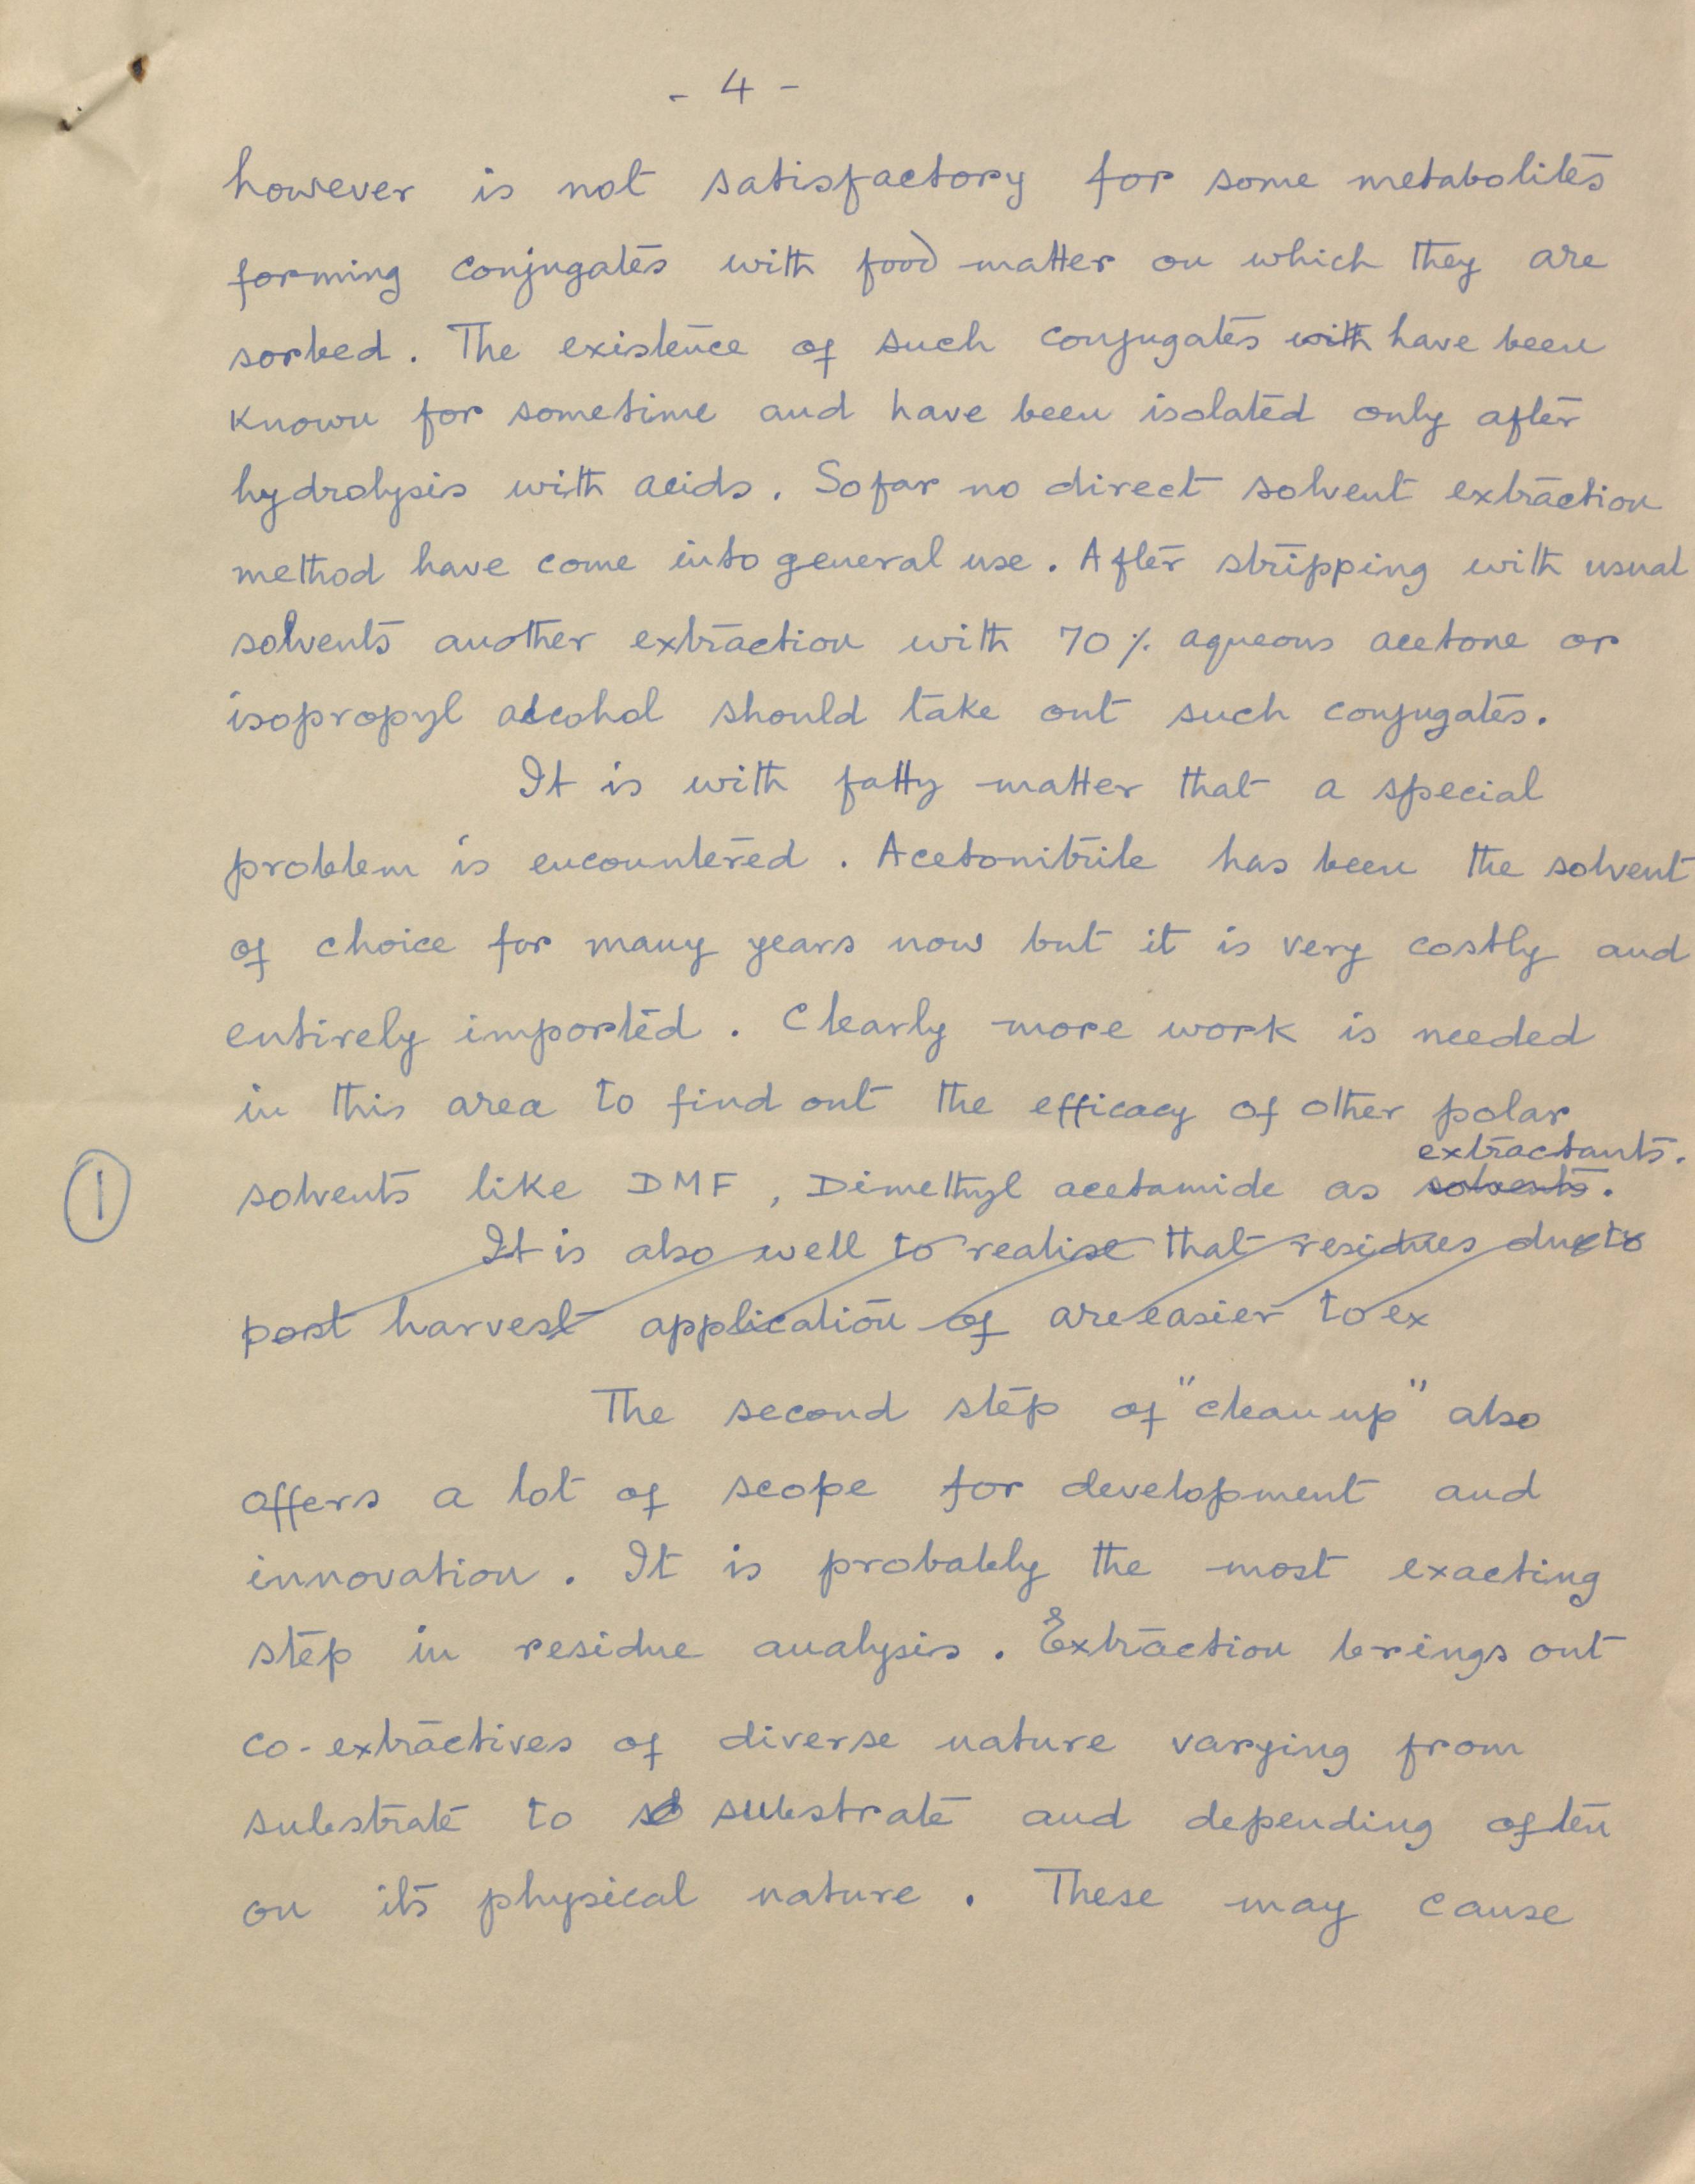 - 4 -
however is not satisfactory for some metabolites
forming conjugates with food matter on which they are
sorbed. The existence of such conjugates with have been
known for sometime and have been isolated only after
hydrolysis with acids. Sofar no direct solvent extraction
method have come into general use. After stripping with usual
solvents another extraction with 70% aqueous acetone or
isopropyl alcohol should take out such conjugates.
It is with fatty matter that a special
problem is encountered. Acetonitrile has been the solvent
of choice for many years now but it is very costly and
entirely imported. Clearly more work is needed
in this area to find out the efficacy of other polar
extractants.
① solvents like DMF, Dimethyl acetamide as solvents.
It is also well to realise that residues due to
post harvest application of are easier to ex
The second step of "clean up" also
offers a lot of scope for development and
innovation. It is probably the most exacting
step in residue analysis. Extraction brings out
co-extractives of diverse nature varying from
substrate to substrate and depending often
on its physical nature. These may cause